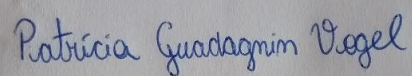 Patrícia Guadagnim Vogel